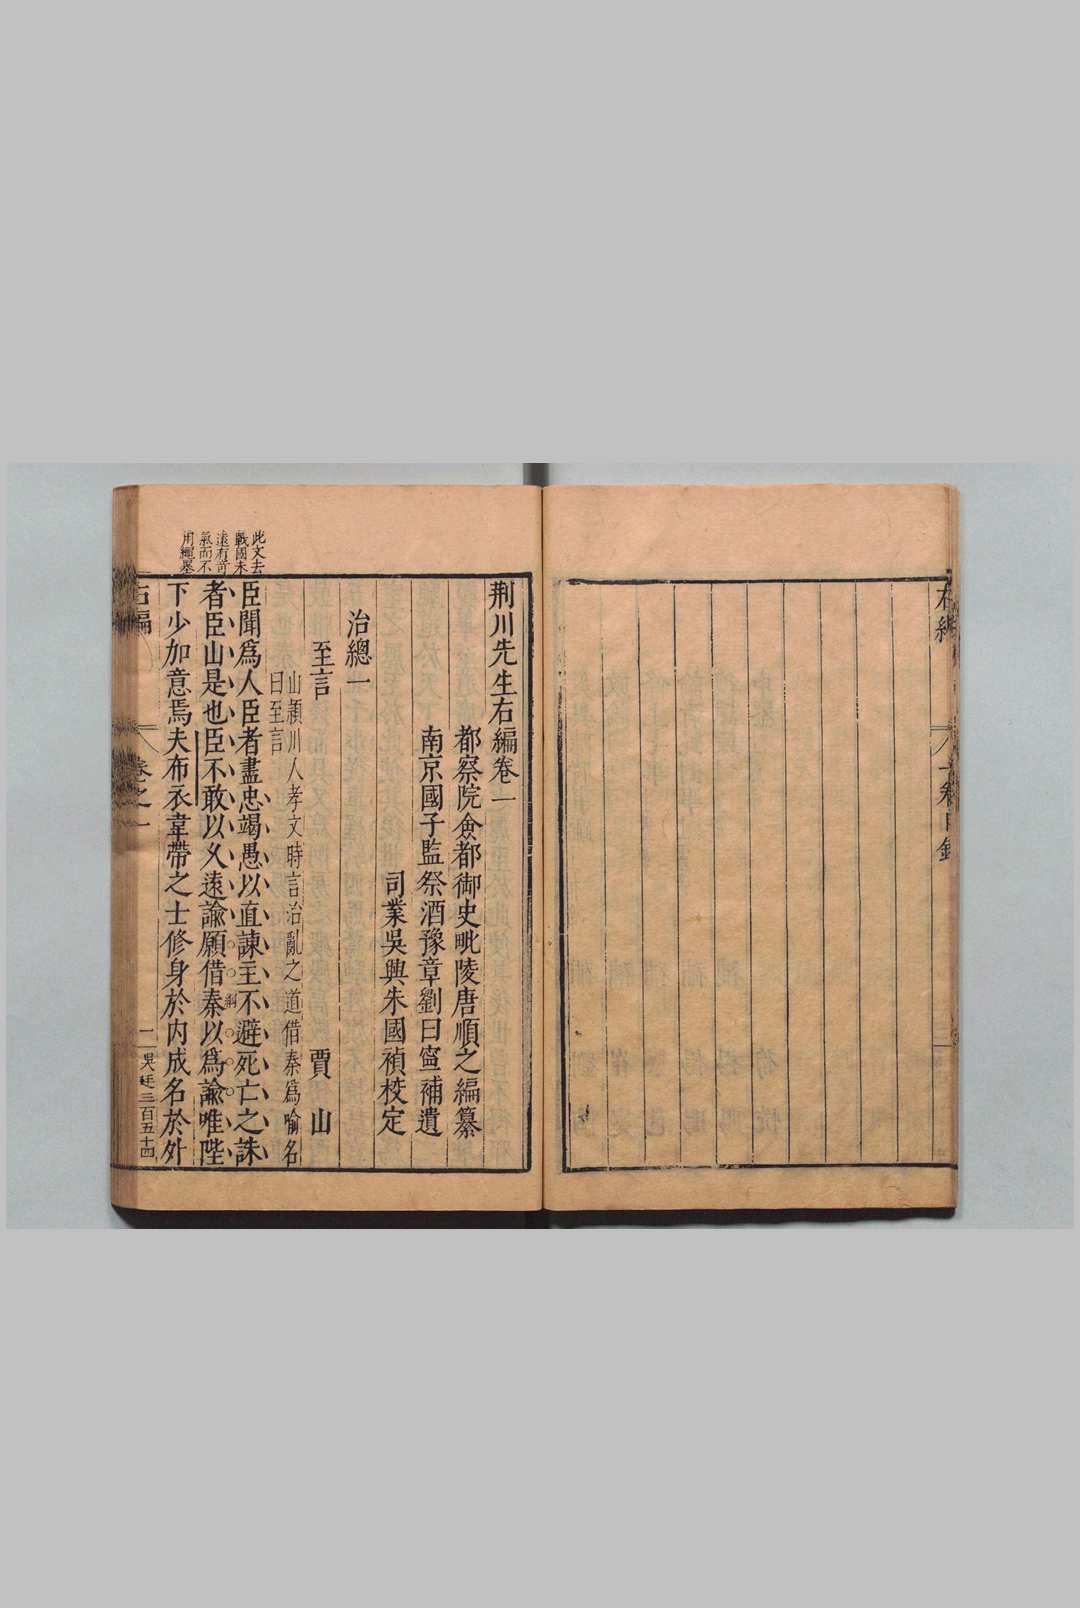 右編
卷目錄
此文去
戰國未
遠有奇
氣而不
用繩墨
荆川先生右編卷一
都察院僉都御史毗陵唐順之編纂
南京國子監祭酒豫章劉曰寧補遺
司業吳興朱國禎校定
治總一
至言 賈山
山潁川人孝文時言治亂之道借秦爲喻名
曰至言
臣聞爲人臣者盡忠竭愚以直諫主不避死亡之誅
者臣山是也臣不敢以久遠諭願借秦以爲諭唯陛
綱
下少加意焉夫布衣韋帶之士修身於内成名於外
右編 卷之一 一 吳廷三百五十四